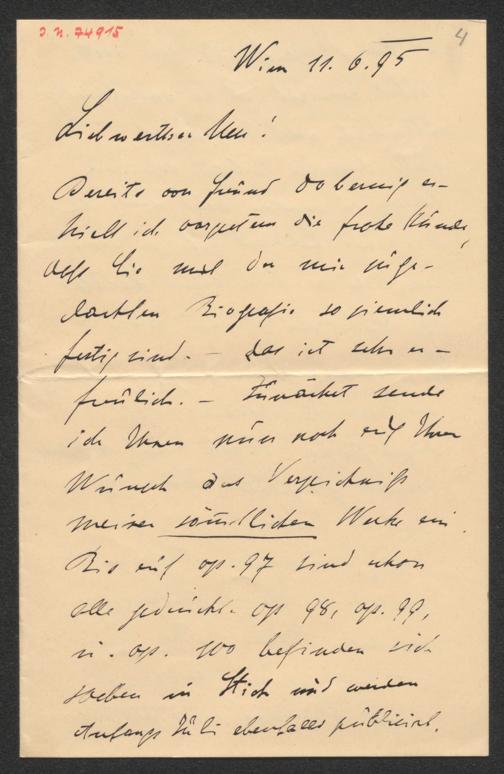 J.N. 74915
4
Wien 11.6.95
Liebwerther Herr!
Bereits von Freund Dobernig er-
hielt ich vorgestern die frohe Kunde,
daß Sie mit der mir zuge-
dachten Biografie so ziemlich
fertig sind. – Das ist sehr er-
freulich. – Zunächst sende
ich Ihnen nun noch auf Ihren
Wunsch das Verzeichniß
meiner sämtlichen Werke ein.
Bis auf op. 97 sind schon
alle gedruckt. op 98, op. 99,
u. op. 100 befinden sich
soeben in Stich und werden
Anfangs Juli ebenfalls publicirt.